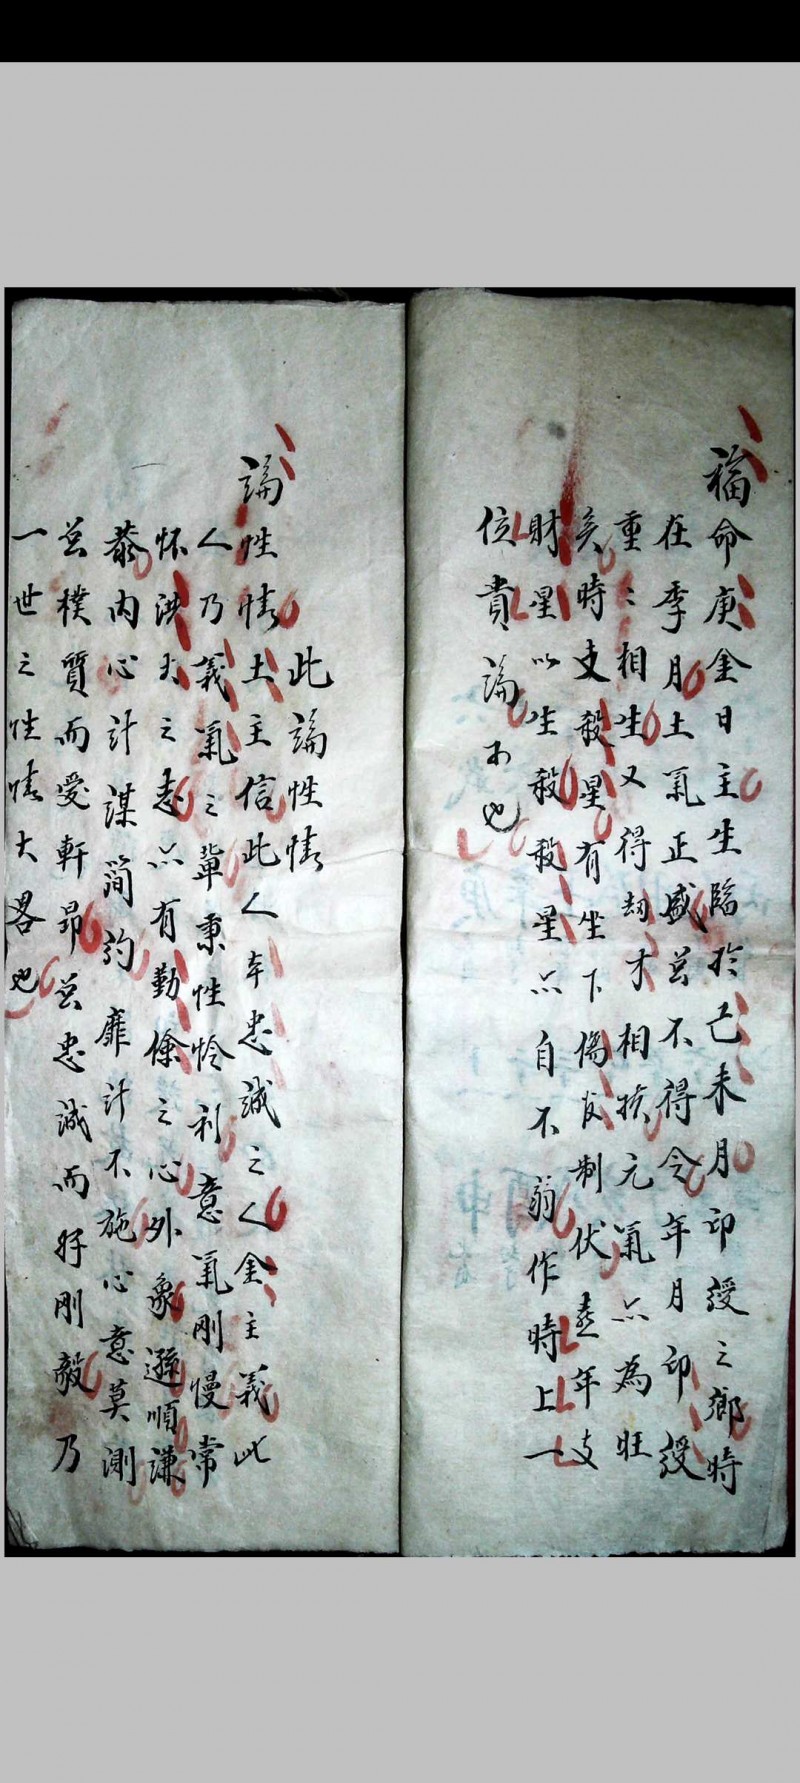 福命庚金日主生臨於己未月印綬之鄉時
在季月土氣正盛豈不得令年月印綬
重重相生又得劫才相扶元氣亦為旺
矣時支殺星有坐下傷官制伏無年支
財星以生殺殺星亦自不弱作時上一
位貴論才也
此論性情
論性情土主信此人本忠誠之人金主義此
人乃義氣之輩秉性怜利意氣剛慢常
怀洪大之志亦有勤儉之心外象遜順謙
恭內心計謀簡約靡計不施心意莫測
豈樸質而愛軒昂豈忠誠而好剛毅乃
一世之性情大畧也